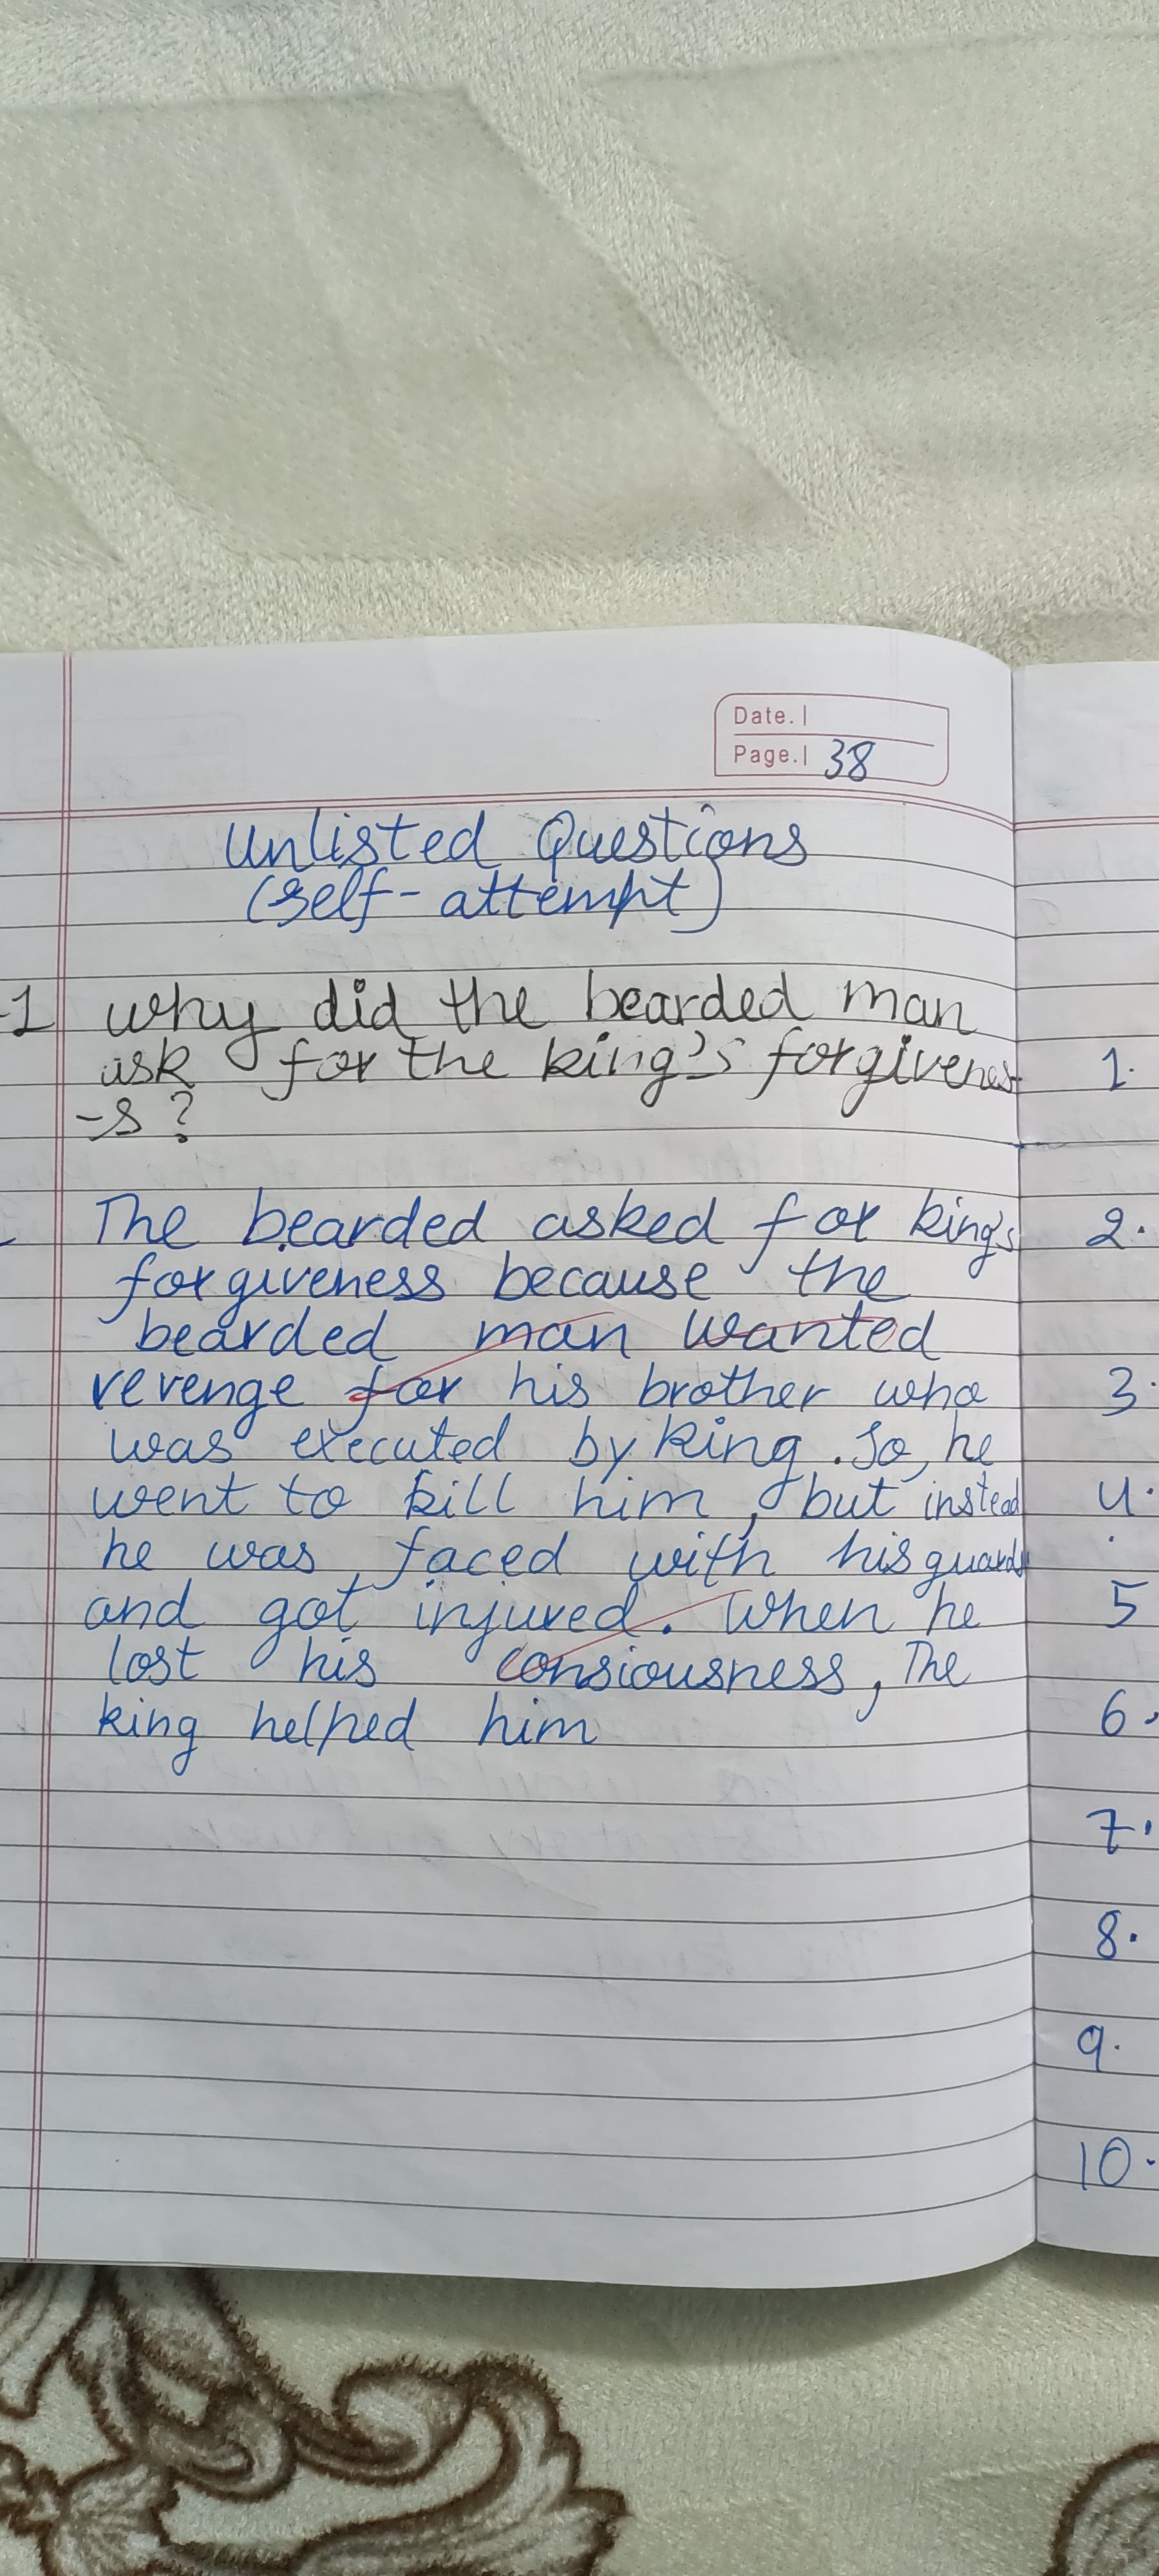 Date.
Page. 38
Unlisted Questions
(self-attempt)
1 why did the bearded man
ask for the king's forgivenes
-s?
The bearded asked for king's
forgiveness because the
bearded man wanted
revenge for his brother who
was executed by king. So, he
went to kill him, but instead
he was faced with his guards
and got injured. When he
lost his consiousness, The
king helped him
1.
2.
3.
4.
5
6.
7.
8.
9.
10.